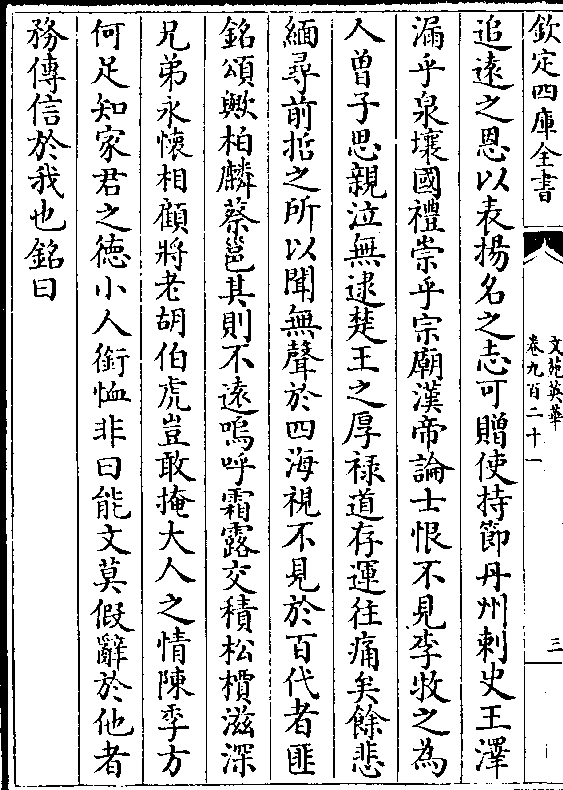 欽定四庫全書
文苑英華
卷九百二十一
三
追逺之恩以表揚名之志可贈使持節丹州刺史王澤
漏乎泉壤國禮崇乎宗廟漢帝論士恨不見李牧之為
人曾子思親泣無逮楚王之厚禄道存運往痛矣餘悲
緬尋前哲之所以聞無聲於四海視不見於百代者匪
銘頌歟柏麟蔡邕其則不遠嗚呼霜露交積松檟滋深
兄弟永懐相顧將老胡伯虎豈敢掩大人之情陳季方
何足知家君之德小人銜恤非曰能文莫假辭於他者
務傳信於我也銘曰